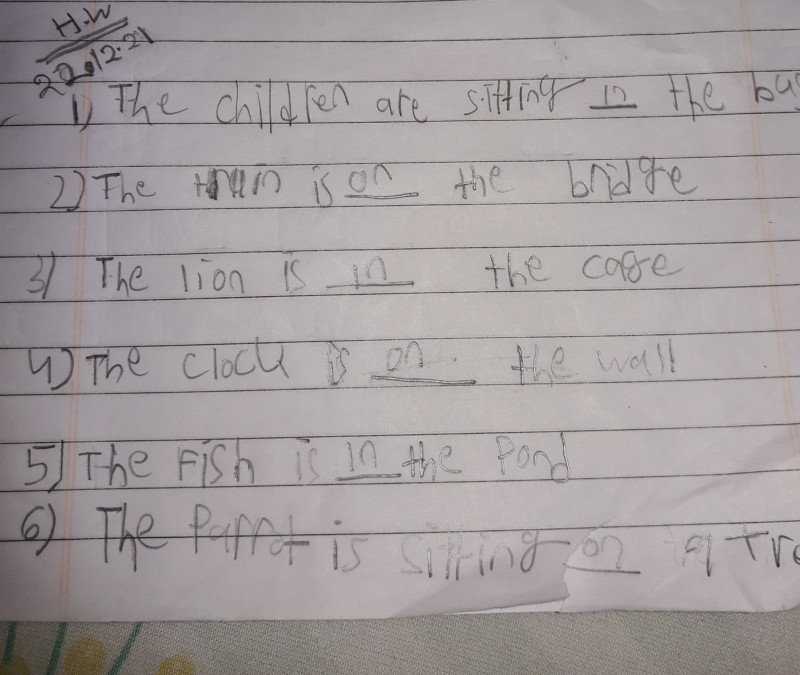 H.W
20.12.21
1) The children are sitting in the bus
2) The train is on the bridge
3) The lion is in the cage
4) The clock is on the wall
5) The Fish is in the Pond
6) The Parrot is sitting on a Tre